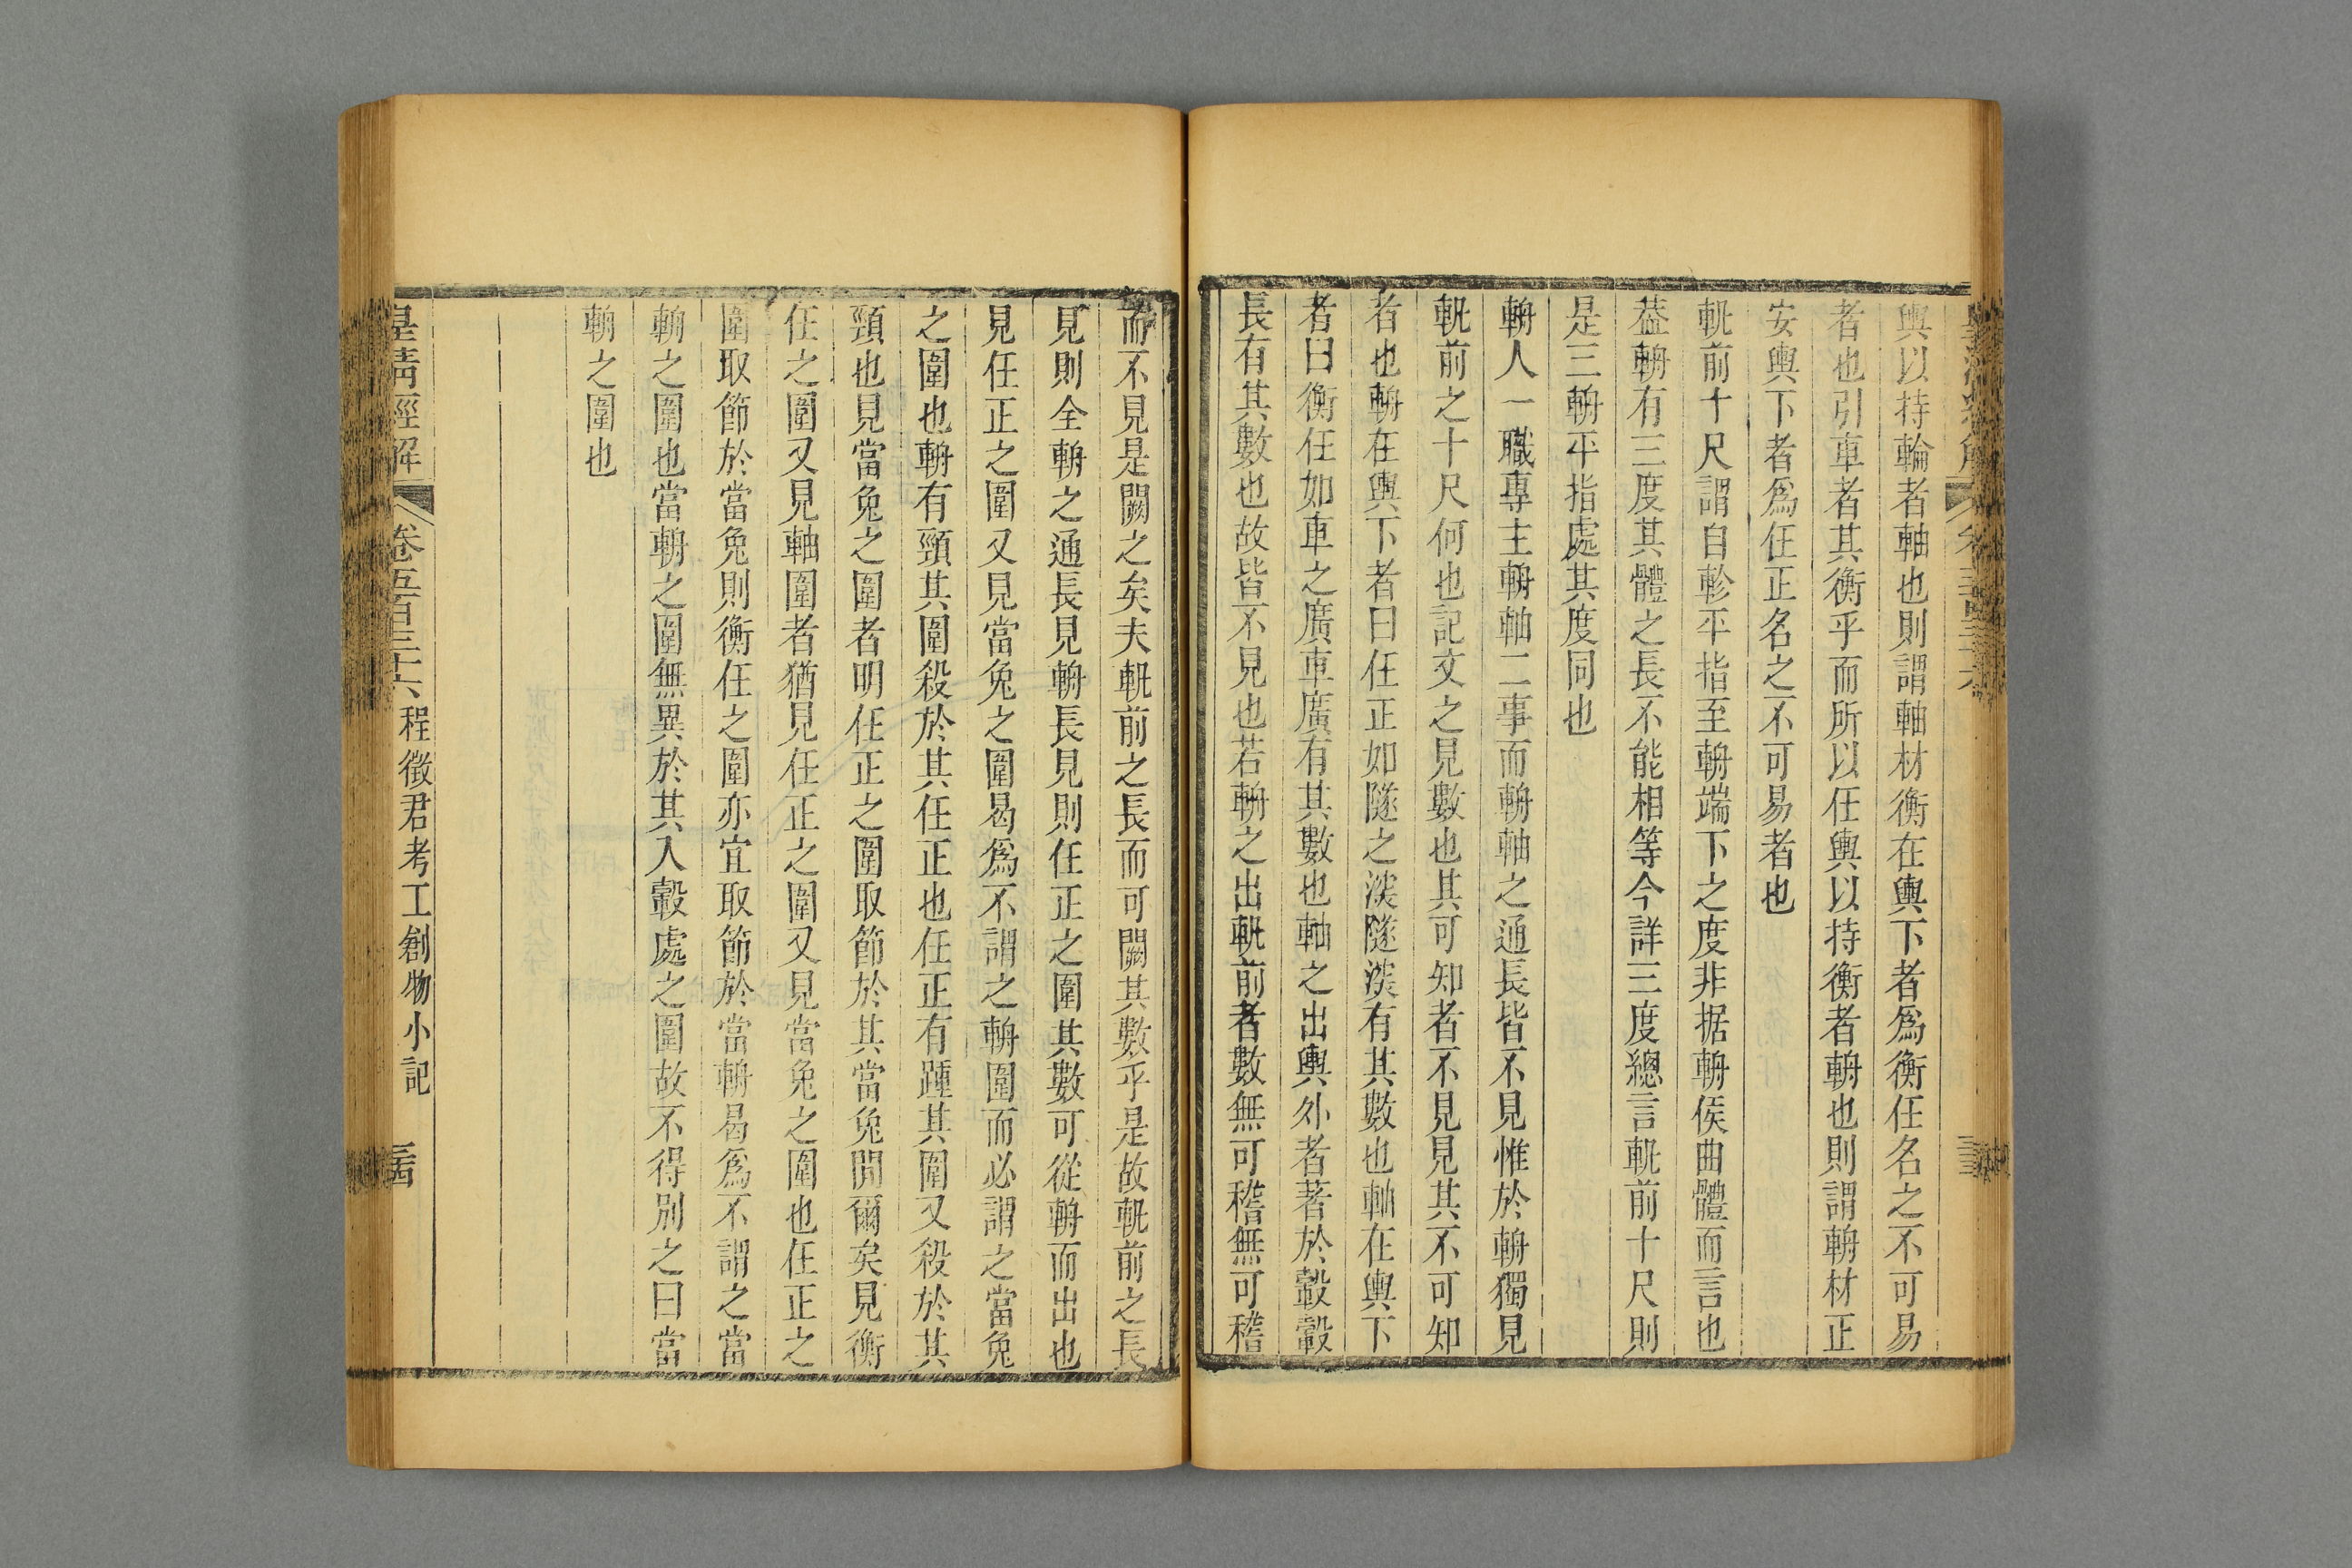 輿以持輪者軸也則謂軸材衡在輿下者爲衡任名之不可易
者也引車者其衡乎而所以任輿以持衡者輈也則謂輈材正
安輿下者爲任正名之不可易者也
軓前十尺謂自軫平指至輈端下之度非据輈侯曲體而言也
葢輈有三度其體之長不能相等今詳三度總言軓前十尺則
是三輈平指處其度同也
輈人一職專主輈軸二事而輈軸之通長皆不見惟於輈獨見
軓前之十尺何也記文之見數也其可知者不見見其不可知
者也輈在輿下者曰任正如隧之㴱隧㴱有其數也軸在輿下
者曰衡任如車之廣車廣有其數也軸之出輿外者著於轂轂
長有其數也故皆不見也若輈之出軓前者數無可稽無可稽
而不見是闕之矣夫軓前之長而可闕其數乎是故軓前之長
見則全輈之通長見輈長見則任正之圍其數可從輈而出也
見任正之圍又見當兔之圍曷爲不謂之輈圍而必謂之當兔
之圍也輈有頸其圍殺於其任正也任正有踵其圍又殺於其
頸也見當兔之圍者明任正之圍取節於其當兔閒爾矣見衡
任之圍又見軸圍者猶見任正之圍又見當兔之圍也任正之
圍取節於當兔則衡任之圍亦宜取節於當輈曷爲不謂之當
輈之圍也當輈之圍無異於其入轂處之圍故不得別之曰當
輈之圍也
皇淸經解 卷五百三十六 程徵君考工創物小記 三西